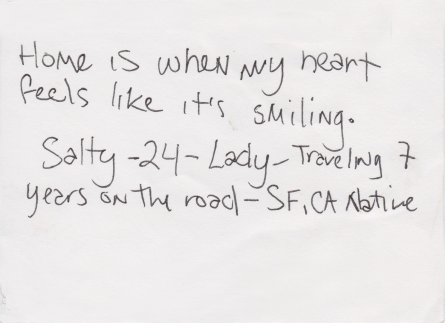 Home is when my heart
feels like it's smiling.
Salty -24- Lady- Traveling 7
years on the road - SF, CA Native